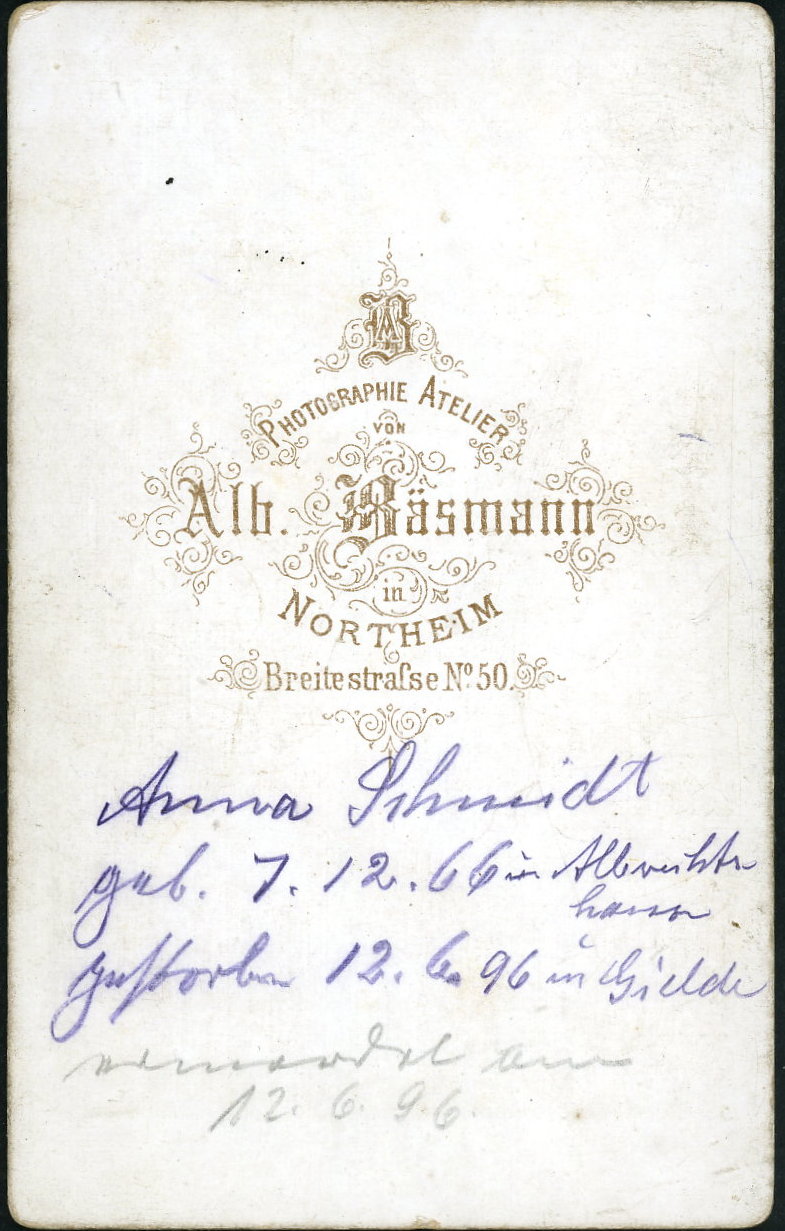 AB
PHOTOGRAPHIE ATELIER
VON
Alb. Bäsmann
in
NORTHEIM
Breitestraſse No. 50.
Anna Schmidt
geb. 7. 12. 66 in Albrechts-
hausen
gestorben 12. 6. 96 in Gielde
ermordet am
12. 6. 96.